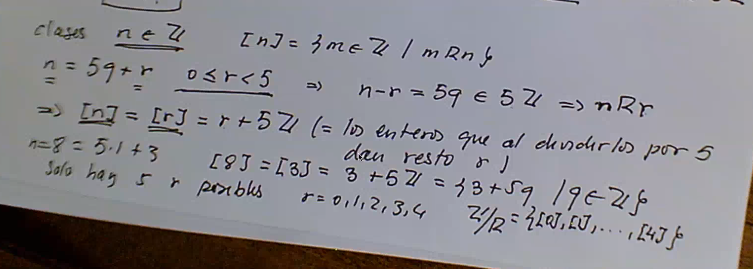 clases n ∈ ℤ [n] = {m ∈ ℤ / m R n}
n = 5q + r 0 ≤ r < 5 ⇒ n - r = 5q ∈ 5ℤ ⇒ n R r
⇒ [n] = [r] = r + 5ℤ (= los enteros que al dividirlos por 5
dan resto r)
n = 8 = 5·1 + 3 [8] = [3] = 3 + 5ℤ = {3 + 5q / q ∈ ℤ}
Solo hay 5 r posibles r = 0, 1, 2, 3, 4 ℤ/R = {[0], [1], ..., [4]}